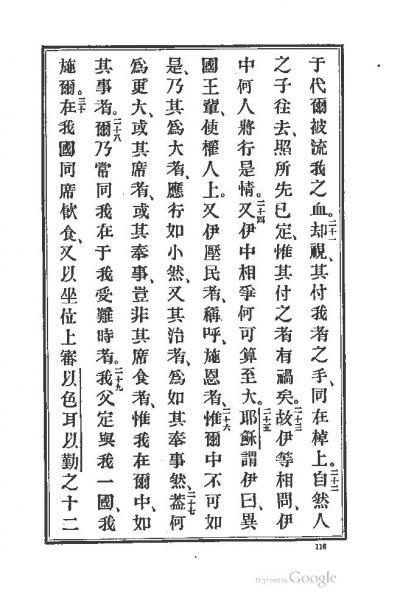 于代爾被流我之血。二十一却視、其付我者之手、同在棹上。二十二自然人
之子往去、照所先已定、惟其付之者有禍矣。二十三故伊等相問、伊
中何人將行是情。二十四又伊中相爭何可算至大。二十五耶穌謂伊曰、異
國王輩、使權人上。又伊壓民者、稱呼、施恩者。二十六惟爾中不可如
是、乃其爲大者、應行如小然、又其治者、爲如其奉事然。二十七葢何
爲更大、或其席者、或其奉事、豈非其席食者、惟我在爾中、如
其事者。二十八爾乃當同我在于我受難時者。二十九我父定與我一國、我
施爾。三十在我國同席飲食、又以坐位上審以色耳以勤之十二
116
Digitized by Google